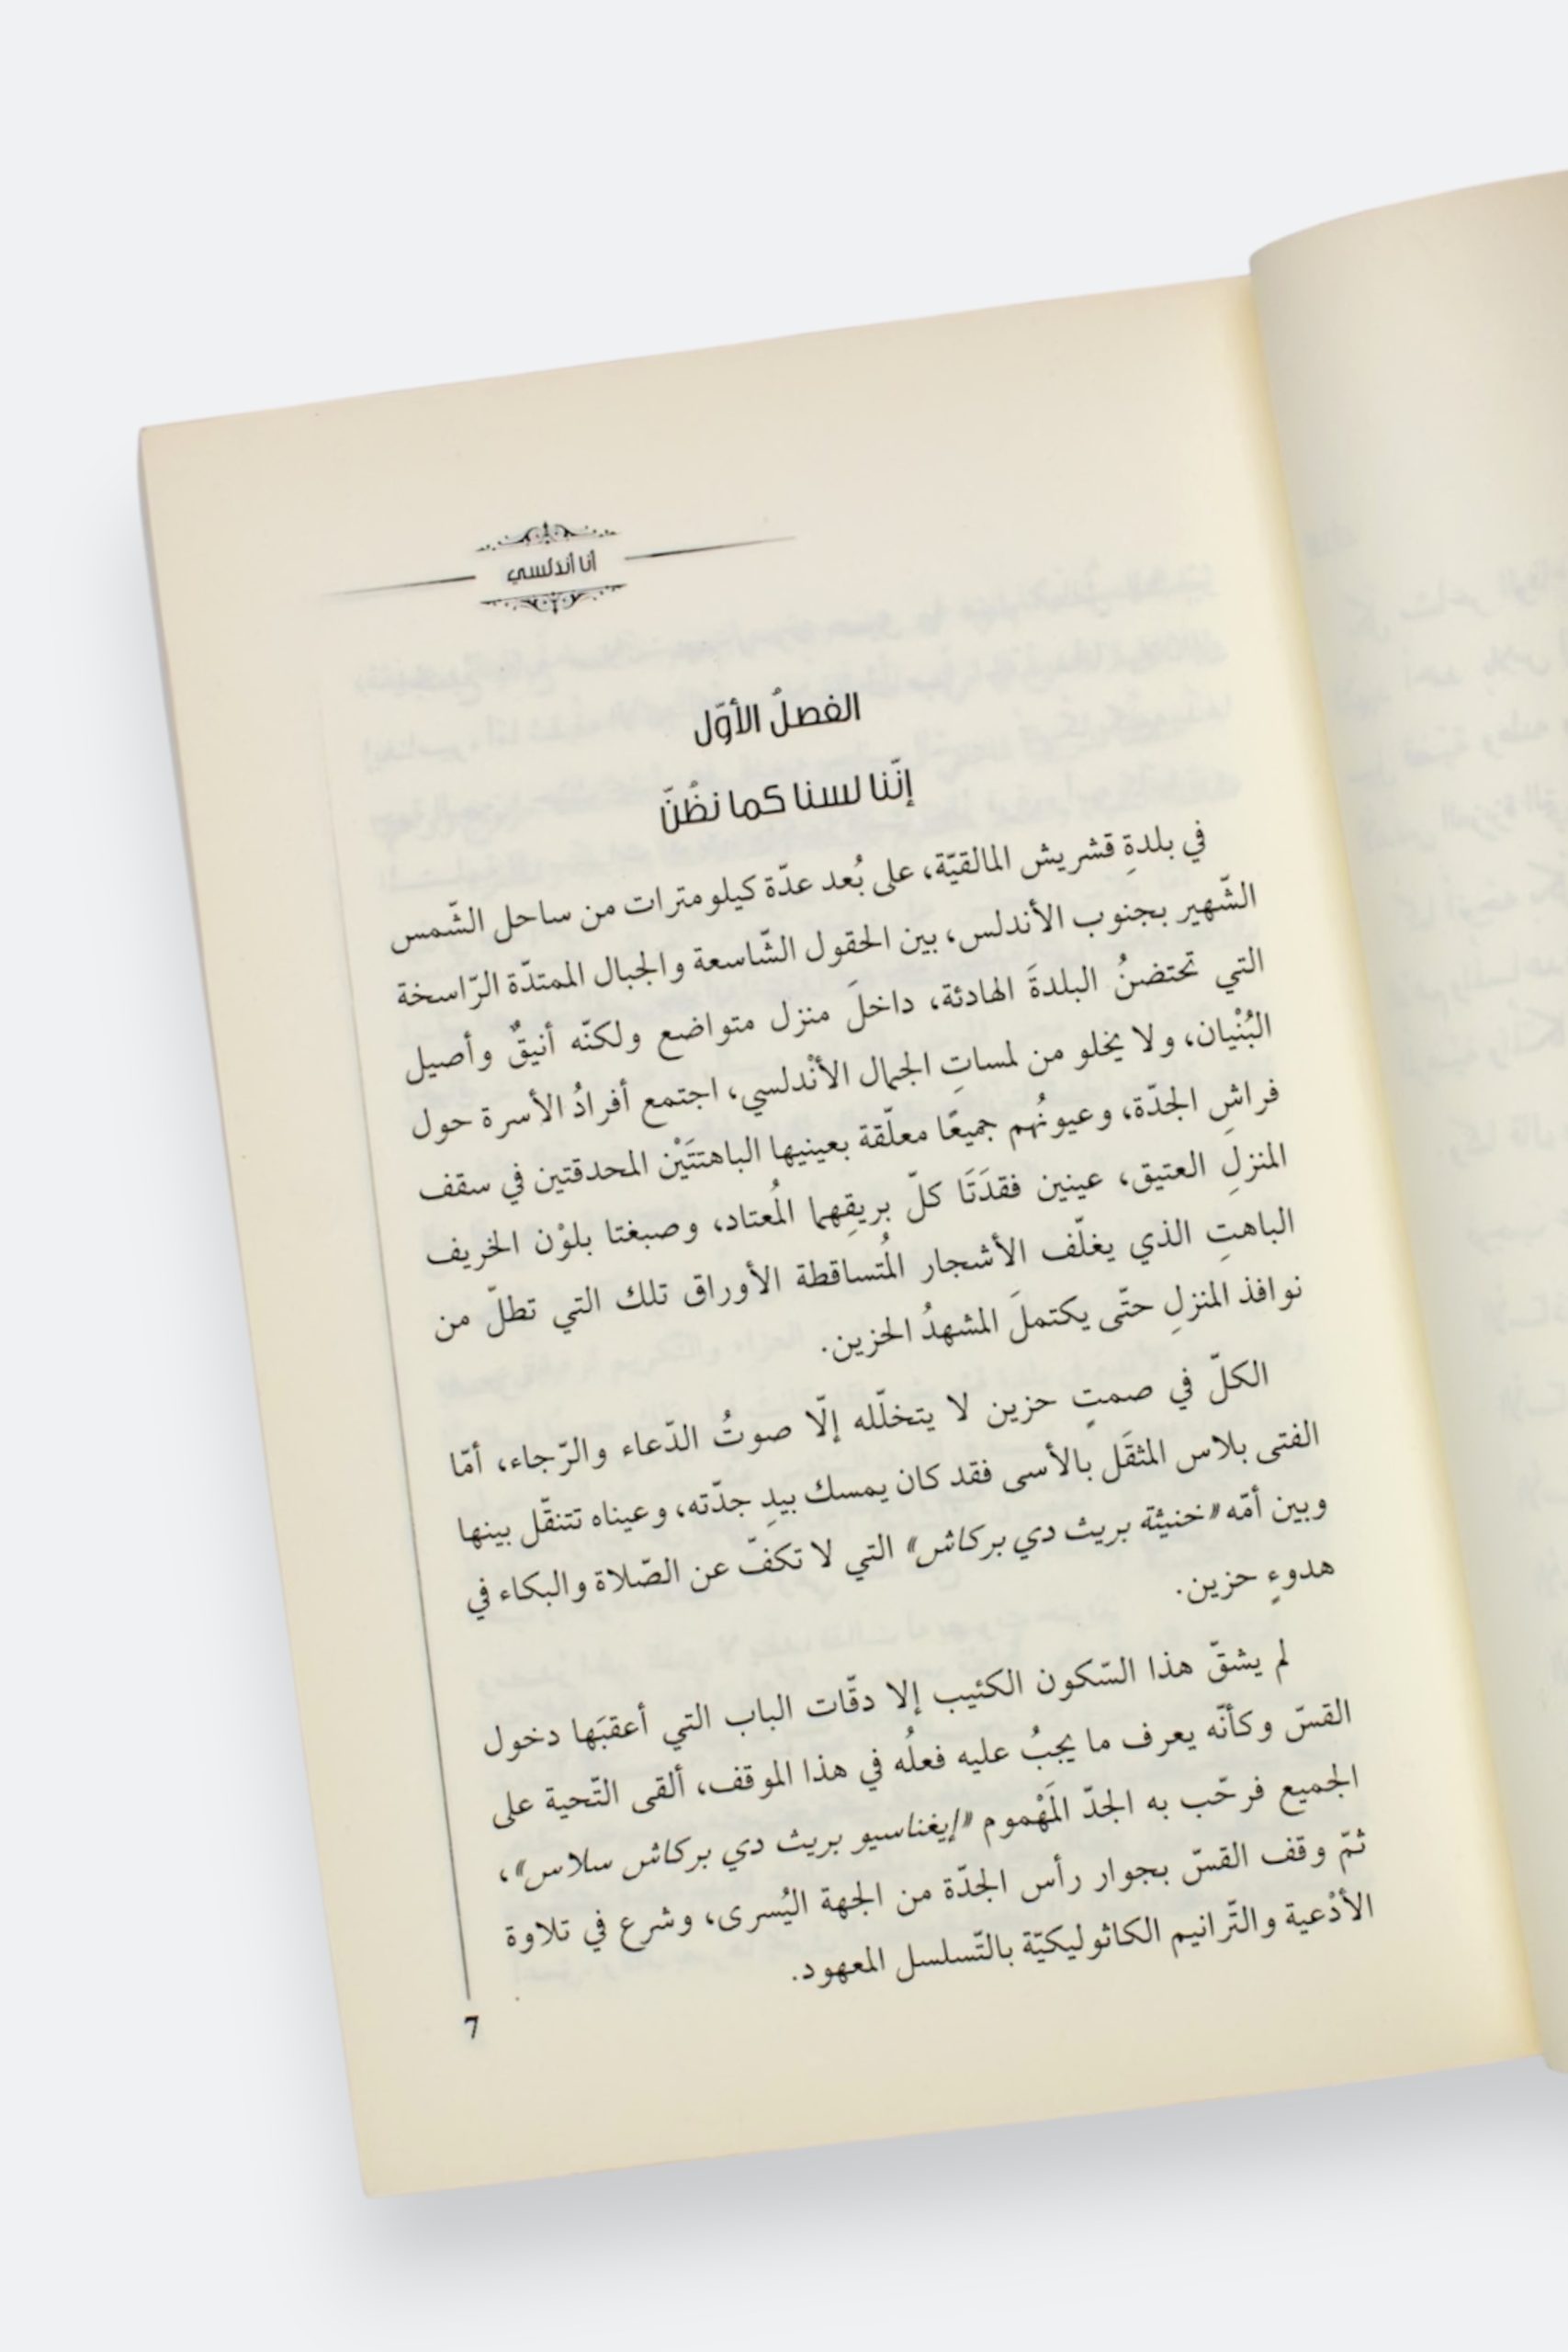 أنا أندلسي
الفصلُ الأوّل
إنّنا لسنا كما نظُنّ
في بلدةِ قشريش المالقيّة، على بُعد عدّة كيلومترات من ساحل الشّمس
الشّهير بجنوب الأندلس، بين الحقول الشّاسعة والجبال الممتدّة الرّاسخة
التي تحتضنُ البلدةَ الهادئة، داخلَ منزل متواضع ولكنّه أنيقٌ وأصيل
البُنْيان، ولا يخلو من لمساتِ الجمال الأنْدلسي، اجتمع أفرادُ الأسرة حول
فراشِ الجدّة، وعيونُهم جميعًا معلّقة بعينيها الباهتتَيْن المحدقتين في سقف
المنزلِ العتيق، عينين فقدَتَا كلّ بريقِهما المُعتاد، وصبغتا بلوْن الخريف
الباهتِ الذي يغلّف الأشجار المُتساقطة الأوراق تلك التي تطلّ من
نوافذ المنزلِ حتّى يكتملَ المشهدُ الحزين.
الكلّ في صمتٍ حزين لا يتخلّله إلّا صوتُ الدّعاء والرّجاء، أمّا
الفتى بلاس المثقَل بالأسى فقد كان يمسك بيدِ جدّته، وعيناه تتنقّل بينها
وبين أمّه «خنيثة بريث دي بركاش» التي لا تكفّ عن الصّلاة والبكاء في
هدوءٍ حزين.
لم يشقّ هذا السّكون الكئيب إلا دقّات الباب التي أعقبَها دخول
القسّ وكأنّه يعرف ما يجبُ عليه فعلُه في هذا الموقف، ألقى التّحية على
الجميع فرحّب به الجدّ المَهْموم «إيغناسيو بريث دي بركاش سلاس»،
ثمّ وقف القسّ بجوار رأس الجدّة من الجهة اليُسرى، وشرع في تلاوة
الأدْعية والتّرانيم الكاثوليكيّة بالتّسلسل المعهود.
7